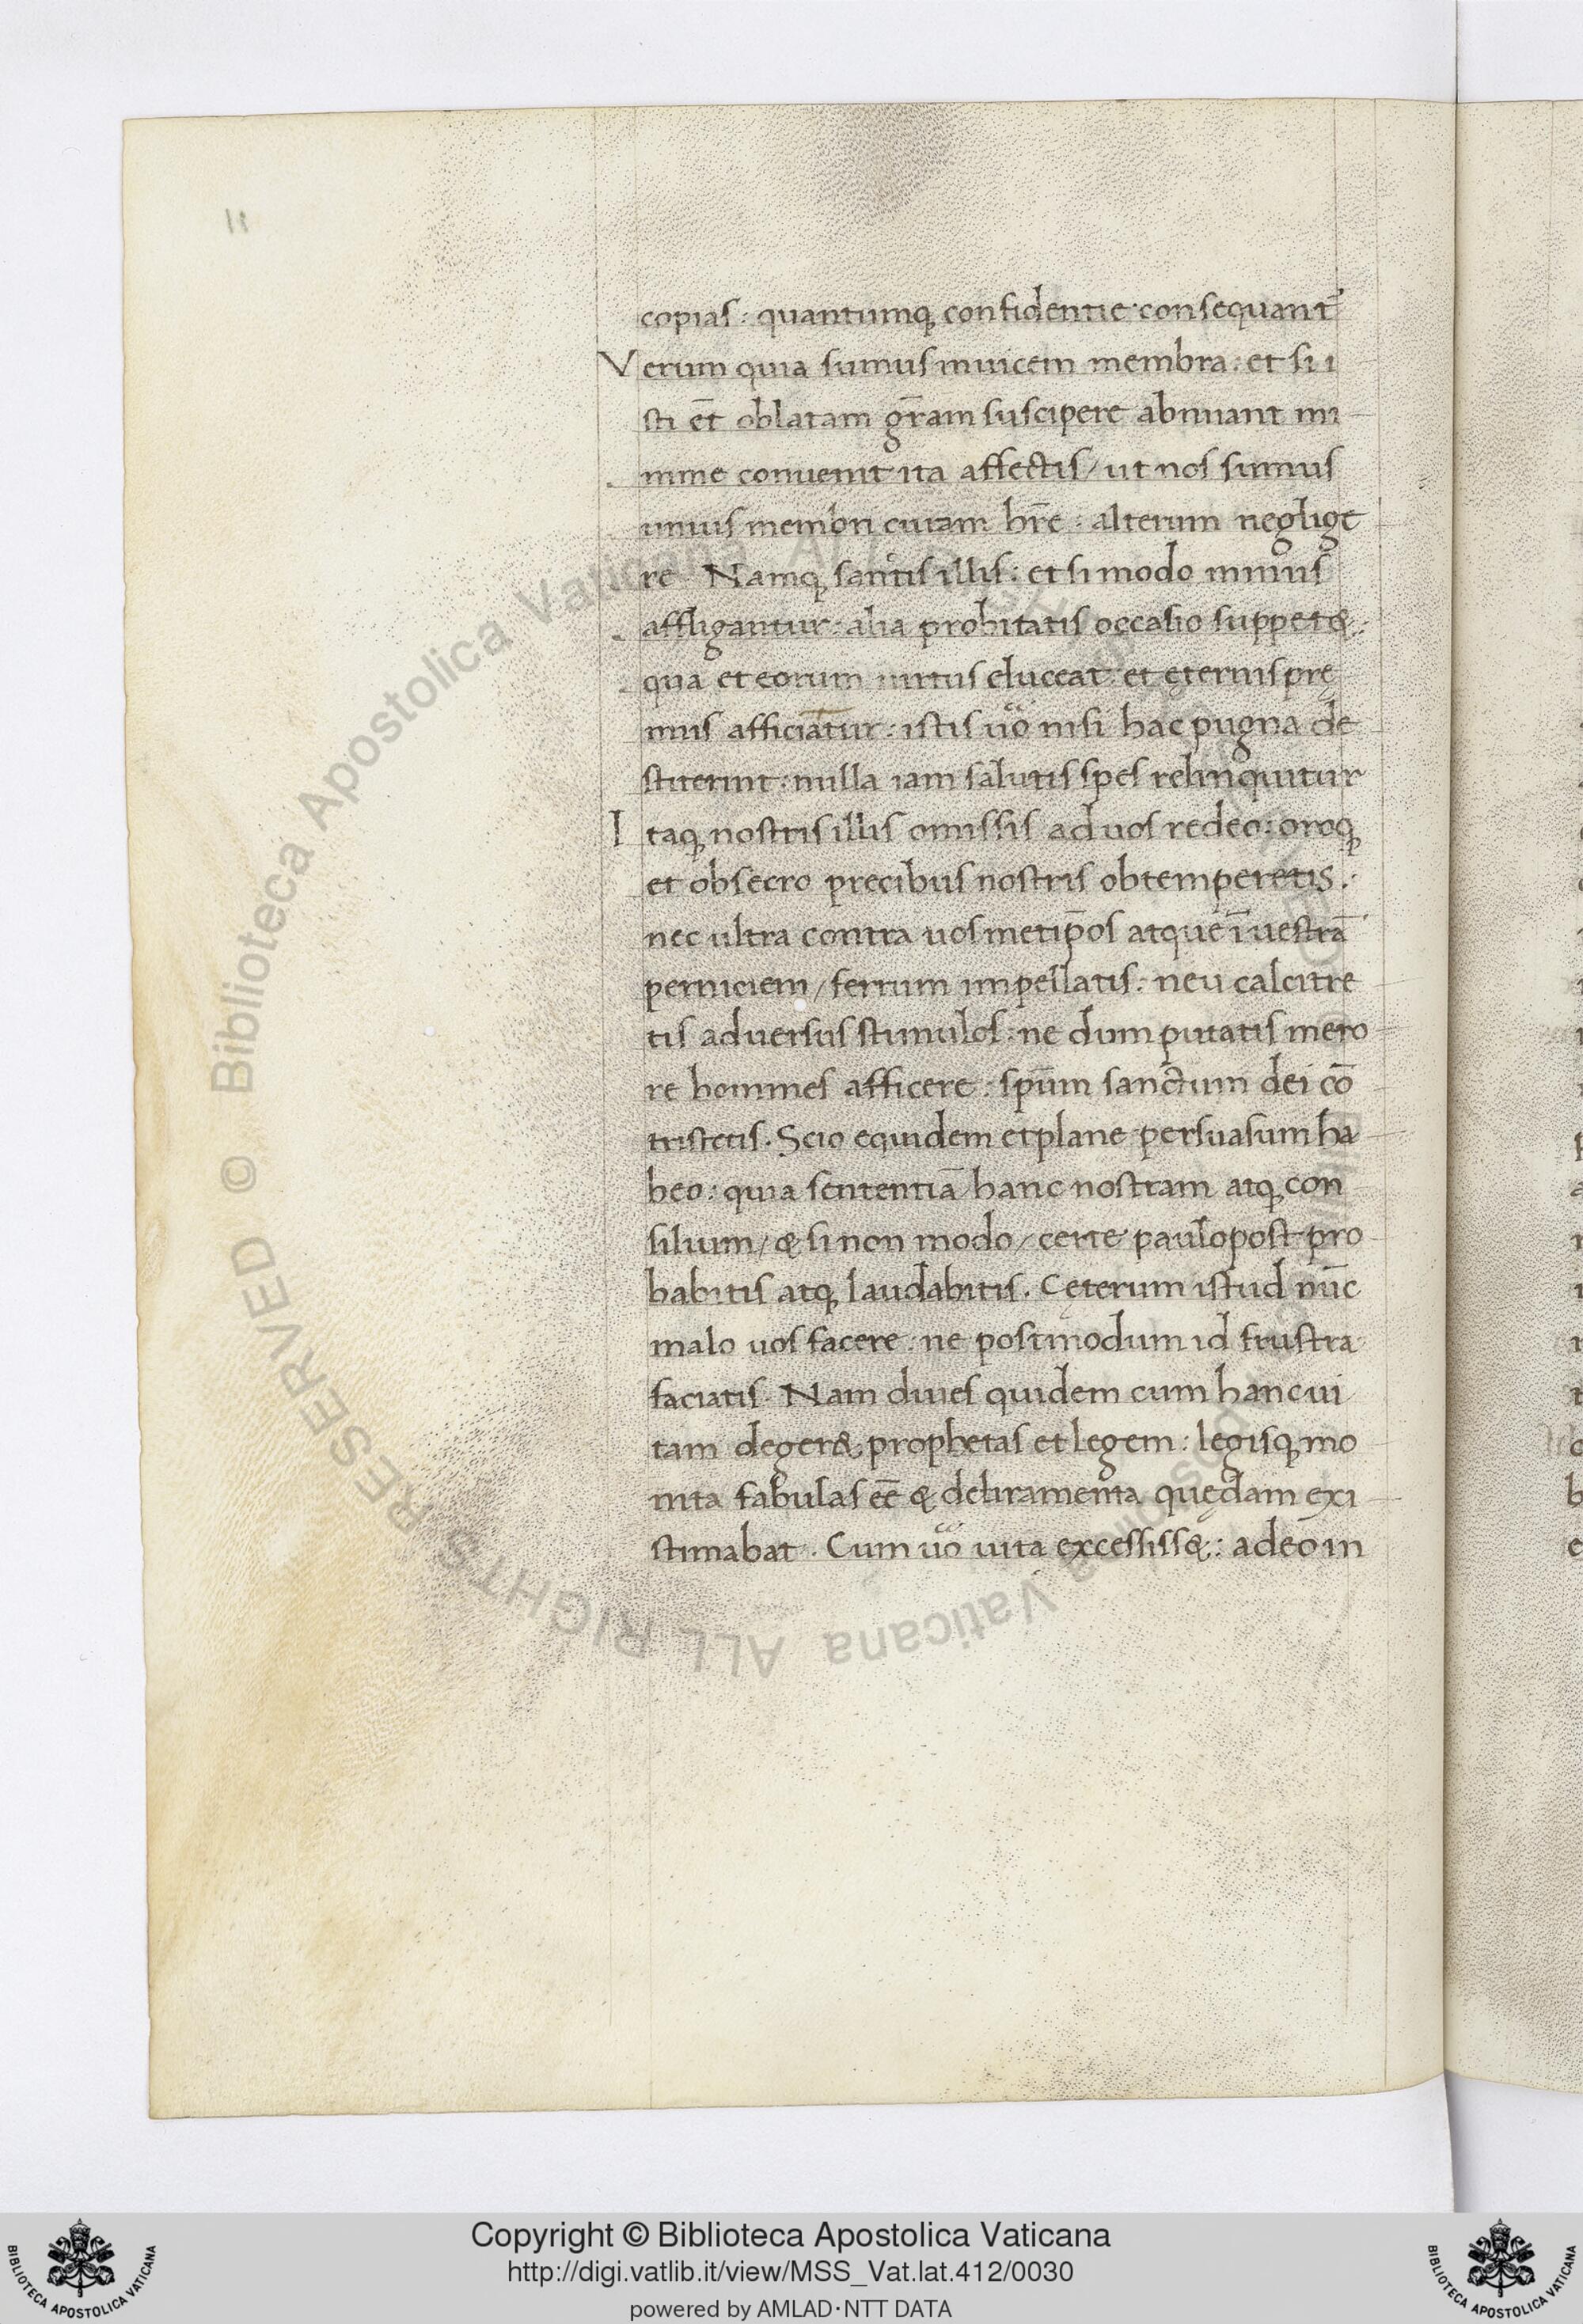 11
copias: quantumq; confidentie consequant᷑
Verum quia sumus inuicem membra: et si i
sti et̄ oblatam gr̄am suscipere abnuant mi
nime conuenit ita affectis/ ut nos sumus
unius membri curam hr̄e: alterum neglige
re. Namq; sanctis illis: et si modo minus
affligantur: alia probitatis occasio suppet&:
qua et eorum uirtus eluceat et ęternis prę
miis afficiatur: istis uo᷑ nisi hac pugna de
stiterint: nulla iam salutis spes relinquitur
Itaq; nostris illis omissis ad uos redeo: oroq;
et obsecro precibus nostris obtemperetis.
nec ultra contra uosmetip̄os atque ī uestrā
perniciem/ ferrum impellatis: neu calcitre
tis aduersus stimulos: ne dum putatis mero
re homines afficere: spūm sanctum dei cō
tristetis. Scio equidem et plane persuasum ha
beo: quia sententiā hanc nostram atq; con
silium/ & si non modo/ certe paulo post pro
babitis atq; laudabitis. Cęterum istud nūc
malo uos facere: ne postmodum id frustra
faciatis. Nam diues quidem cum hanc ui
tam deger&; prophetas et legem: legisq; mo
nita fabulas eē & deliramenta quędam exi
stimabat. Cum uo᷑ uita excessiss&: adeo in
Biblioteca Apostolica Vaticana ALL RIGHTS RESERVED ©
Copyright © Biblioteca Apostolica Vaticana
http://digi.vatlib.it/view/MSS_Vat.lat.412/0030
powered by AMLAD·NTT DATA
BIBLIOTECA APOSTOLICA VATICANA
BIBLIOTECA APOSTOLICA VATICANA